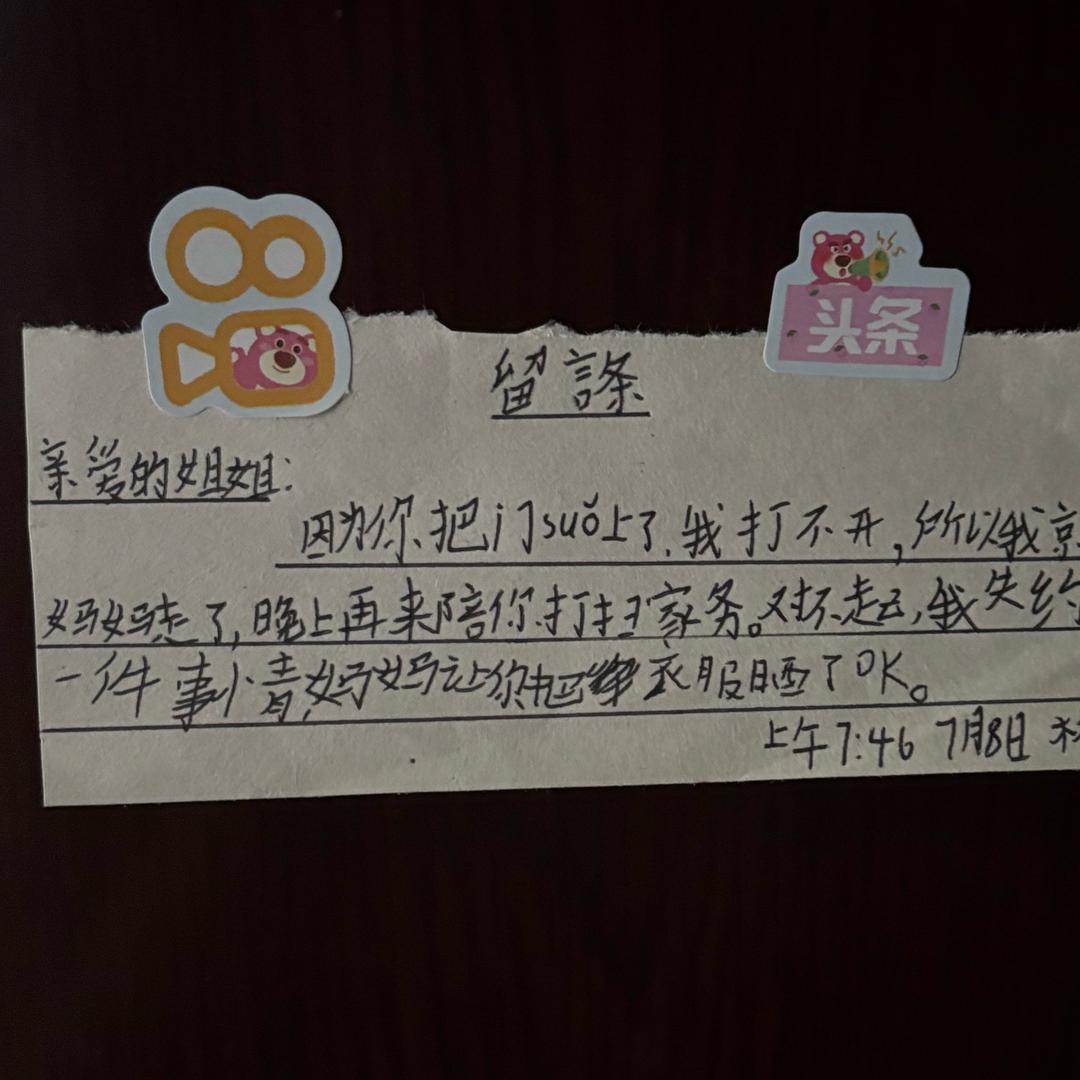 头条
留言条
亲爱的姐姐:
因为你把门suǒ上了,我打不开,所以我
妈妈走了,晚上再来陪你打扫家务。对不起,我失约
一件事情,妈妈让你把衣服晒了OK。
上午7:46 7月8日